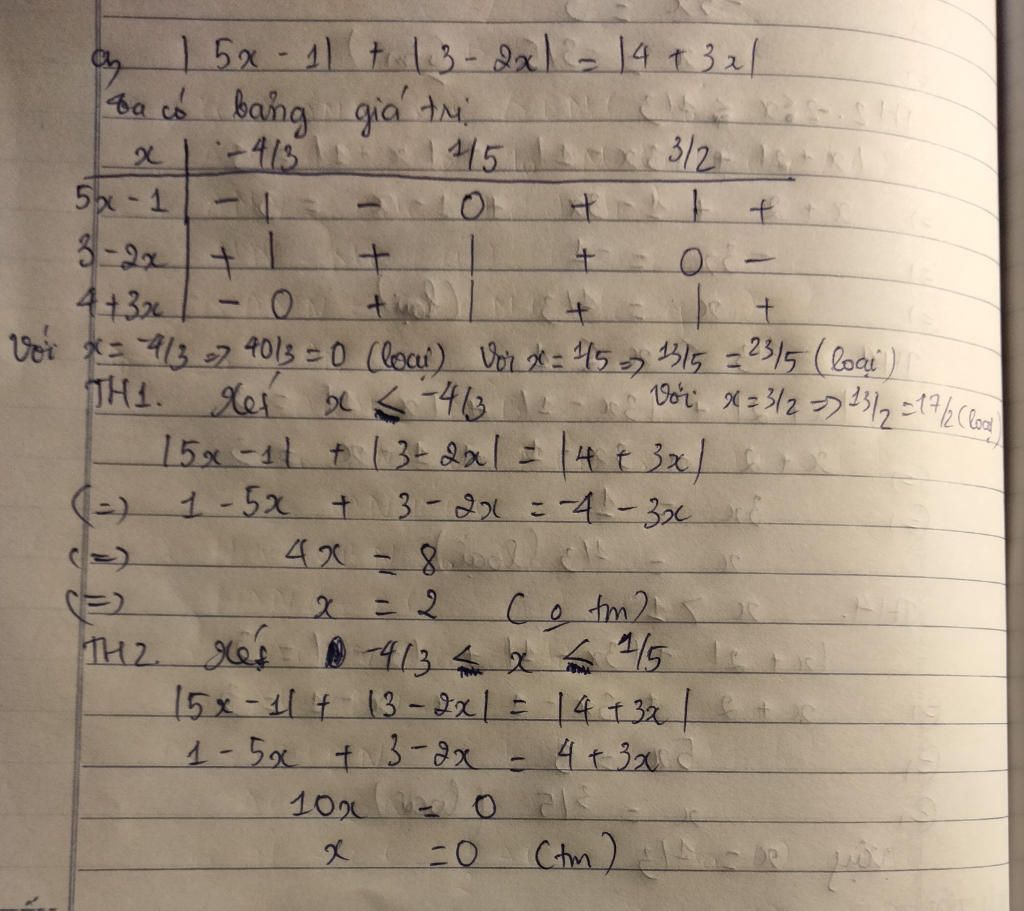 a, |5x - 1| + |3 - 2x| = |4 + 3x|
Ta có bảng giá trị
x | -4/3 1/5 3/2
5x - 1 | - | - 0 + | +
3 - 2x | + | + | + 0 -
4 + 3x | - 0 + | + | +
Với x = -4/3 => 40/3 = 0 (loại) Với x = 1/5 => 13/5 = 23/5 (loại)
TH1. Xét x ≤ -4/3 Với x = 3/2 => 13/2 = 17/2 (loại)
|5x - 1| + |3 - 2x| = |4 + 3x|
(=) 1 - 5x + 3 - 2x = -4 - 3x
(=) 4x = 8
(=) x = 2 (o tm)
TH2. Xét -4/3 ≤ x ≤ 1/5
|5x - 1| + |3 - 2x| = |4 + 3x|
1 - 5x + 3 - 2x = 4 + 3x
10x = 0
x = 0 (tm)